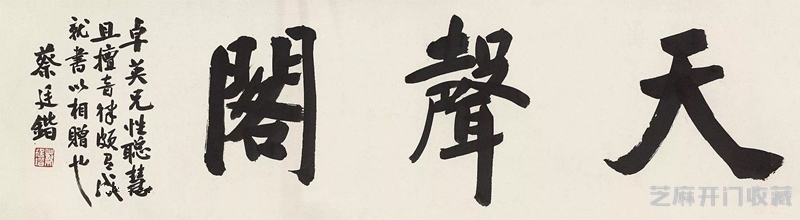 天聲閣
卓英兄性聰慧
且擅音律頗有成
就書以相贈也
蔡廷鍇
芝麻开门收藏